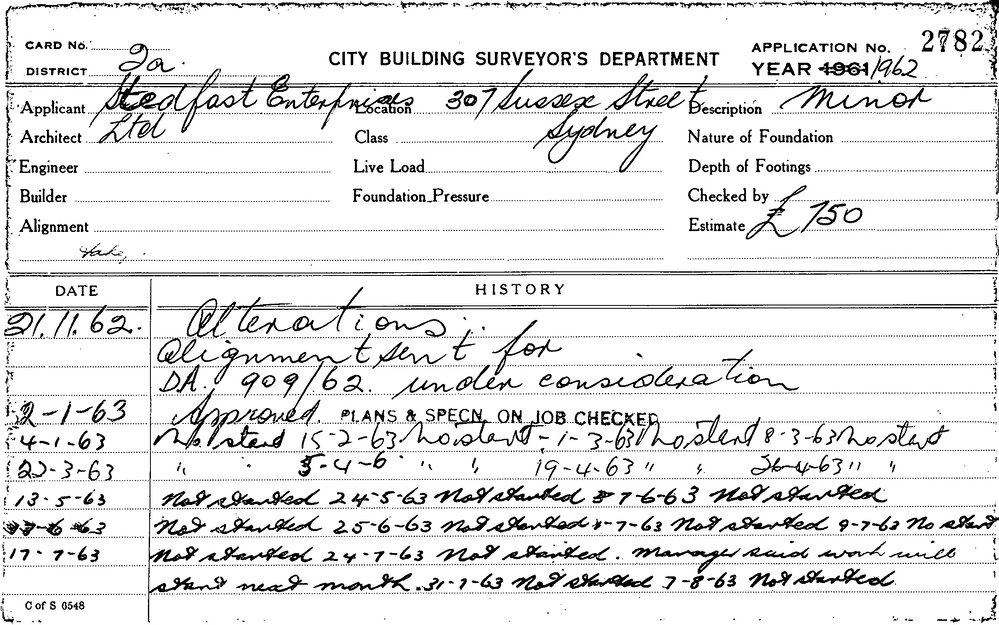 CARD No. CITY BUILDING SURVEYOR'S DEPARTMENT APPLICATION No. 2782
DISTRICT 2a. YEAR 1961/1962
Applicant Stedfast Enterprises Location 307 Sussex Street Description Minor
Architect Ltd Class Sydney Nature of Foundation
Engineer Live Load Depth of Footings
Builder Foundation Pressure Checked by
Alignment Estimate £750
DATE HISTORY
21.11.62. Alterations.
Alignment sent for
DA. 909/62. under consideration
2-1-63 Approved. PLANS & SPECN. ON JOB CHECKED
4-1-63 No start 15-2-63 No start - 1-3-63 No start 8-3-63 No start
22-3-63 " " 5-4-6 " " 19-4-63 " " 26-4-63 " "
13-5-63 Not started 24-5-63 Not started 7-6-63 Not started
Not started 25-6-63 Not started -7-63 Not started 9-7-63 No start
17-7-63 Not started 24-7-63 Not started. Manager said work will
start next month. 31-7-63 Not started 7-8-63 Not started
C of S 6548